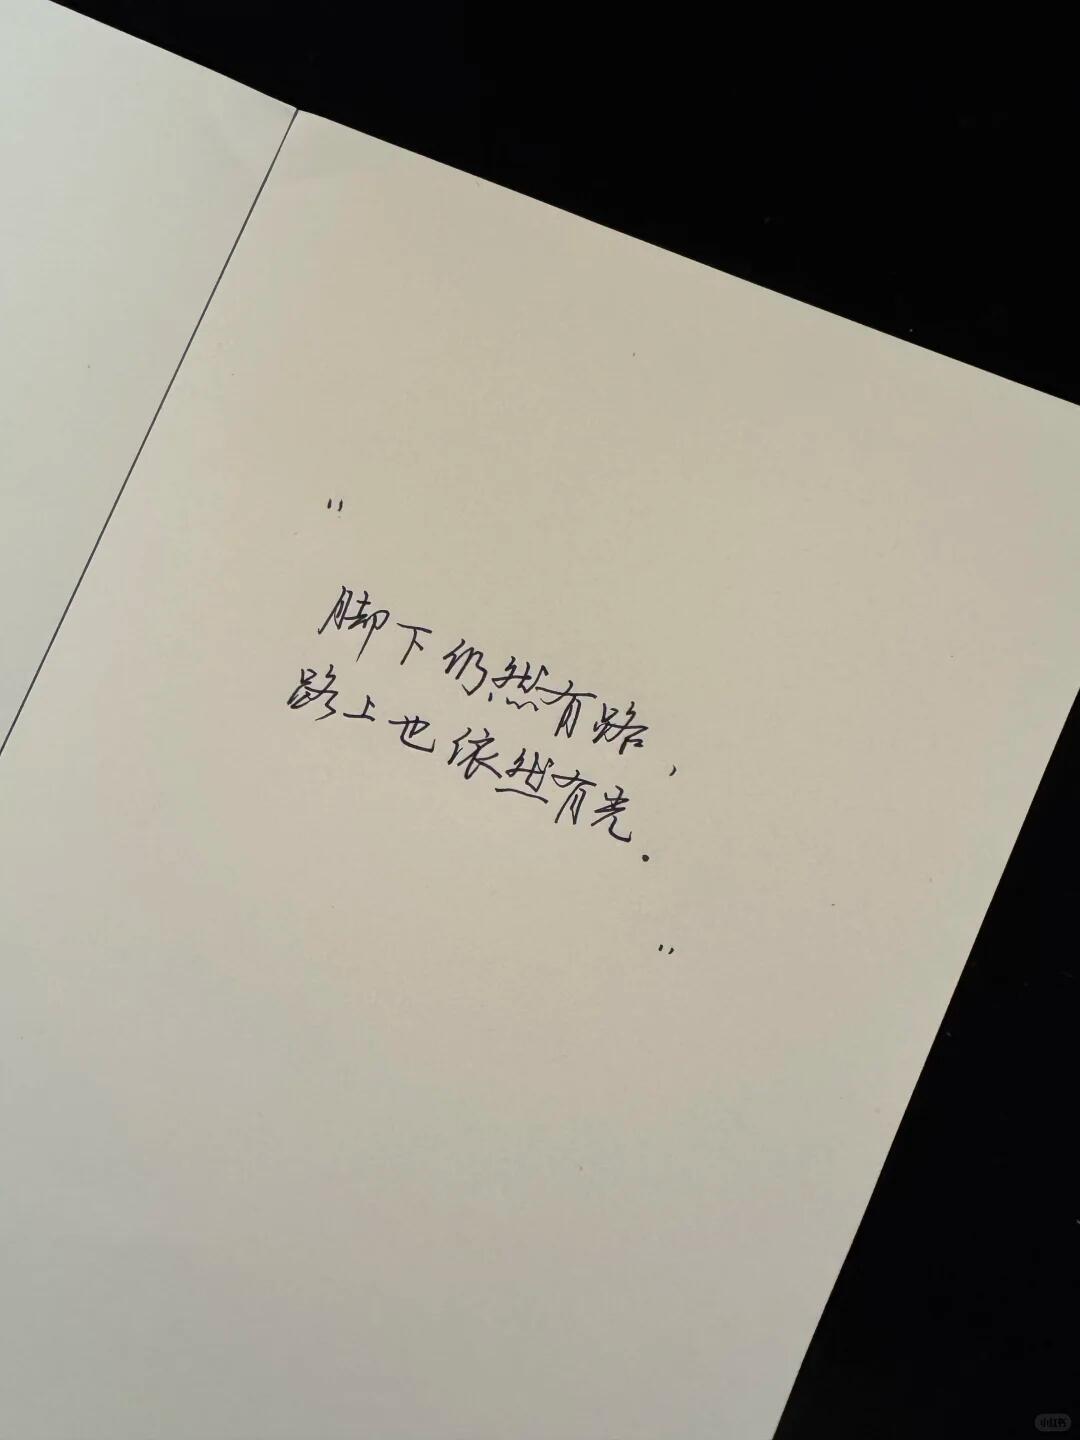 "
脚下仍然有路，
路上也依然有光.
"
小红书